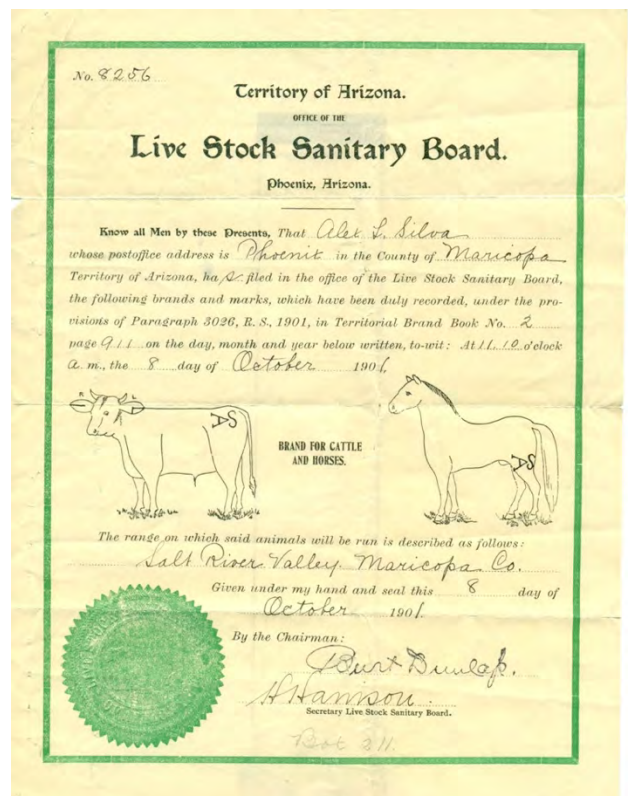 No. 8256
Territory of Arizona.
OFFICE OF THE
Live Stock Sanitary Board.
Phoenix, Arizona.
Know all Men by these Presents, That Alex L. Silva
whose postoffice address is Phoenix in the County of Maricopa
Territory of Arizona, has filed in the office of the Live Stock Sanitary Board,
the following brands and marks, which have been duly recorded, under the pro-
visions of Paragraph 3026, R. S., 1901, in Territorial Brand Book No. 2
page 911 on the day, month and year below written, to-wit: At 11.10 o'clock
a. m., the 8 day of October 1901.
AS
BRAND FOR CATTLE
AND HORSES.
AS
The range on which said animals will be run is described as follows:
Salt River Valley Maricopa Co.
Given under my hand and seal this 8 day of
October 1901.
By the Chairman:
Burt Dunlap.
H Harrison
Secretary Live Stock Sanitary Board.
Box 211.